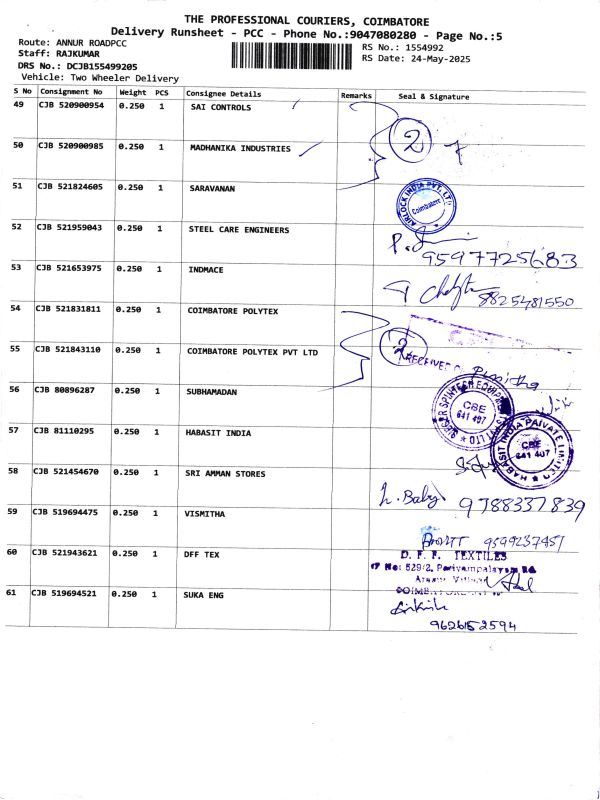 THE PROFESSIONAL COURIERS, COIMBATORE
Delivery Runsheet - PCC - Phone No.:9047080280 - Page No.:5
Route: ANNUR ROADPCC
Staff: RAJKUMAR
DRS No.: DCJB155499205
Vehicle: Two Wheeler Delivery
RS No.: 1554992
RS Date: 24-May-2025
S No Consignment No Weight PCS Consignee Details Remarks Seal & Signature
49 CJB 520900954 0.250 1 SAI CONTROLS
2
50 CJB 520900985 0.250 1 MADHANIKA INDUSTRIES
51 CJB 521824605 0.250 1 SARAVANAN
AIRLOCK INDIA PVT. LTD
Coimbatore
52 CJB 521959043 0.250 1 STEEL CARE ENGINEERS
9597725683
53 CJB 521653975 0.250 1 INDMACE
8825481550
54 CJB 521831811 0.250 1 COIMBATORE POLYTEX
2
55 CJB 521843110 0.250 1 COIMBATORE POLYTEX PVT LTD
RECEIVED
56 CJB 80896287 0.250 1 SUBHAMADAN
CBE
641 407
57 CJB 81110295 0.250 1 HABASIT INDIA
HABASIT INDIA PRIVATE LIMITED
CBE
641 407
58 CJB 521454670 0.250 1 SRI AMMAN STORES
h. Baby 9788337839
59 CJB 519694475 0.250 1 VISMITHA
9599237451
60 CJB 521943621 0.250 1 DFF TEX
D. F. F. TEXTILES
No: 529/2, Periyampalayam
61 CJB 519694521 0.250 1 SUKA ENG
9626152594